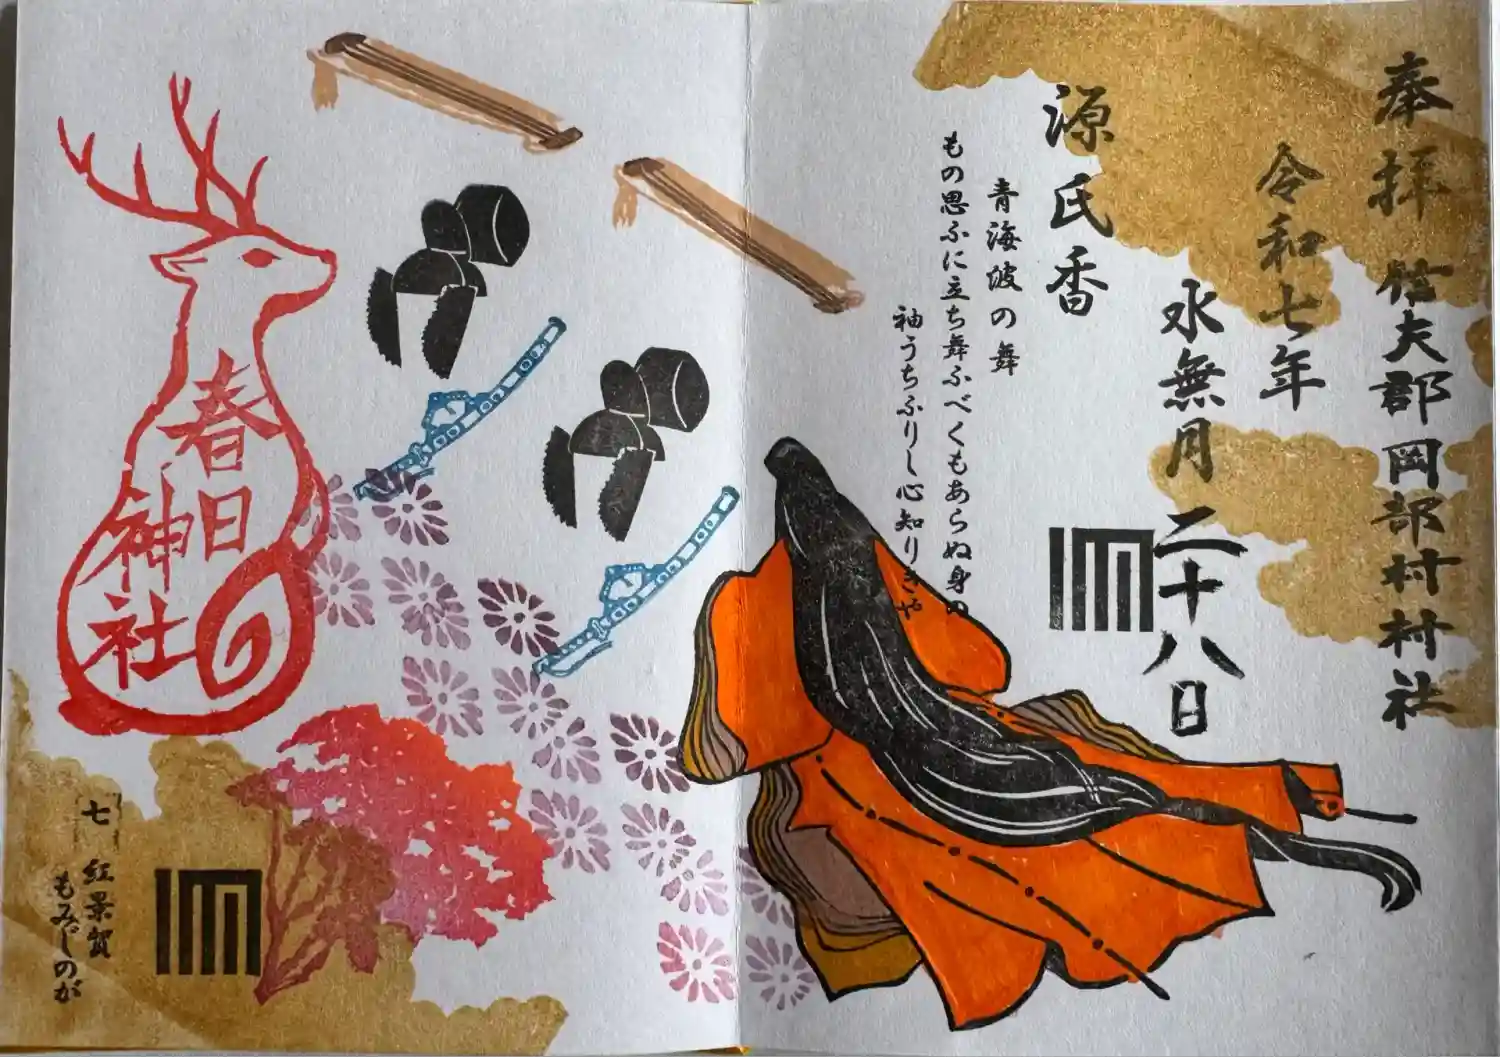 奉拝 信夫郡岡部村村社
令和七年
水無月二十八日
源氏香
青海波の舞
もの思ふに立ち舞ふべくもあらぬ身の
袖うちふりし心知りきや
春日
神社
七 紅
賀
もみぢのが